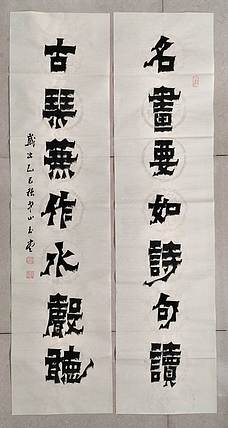 名畫要如詩句讀
古琴兼作水聲聽
歲次乙巳秋